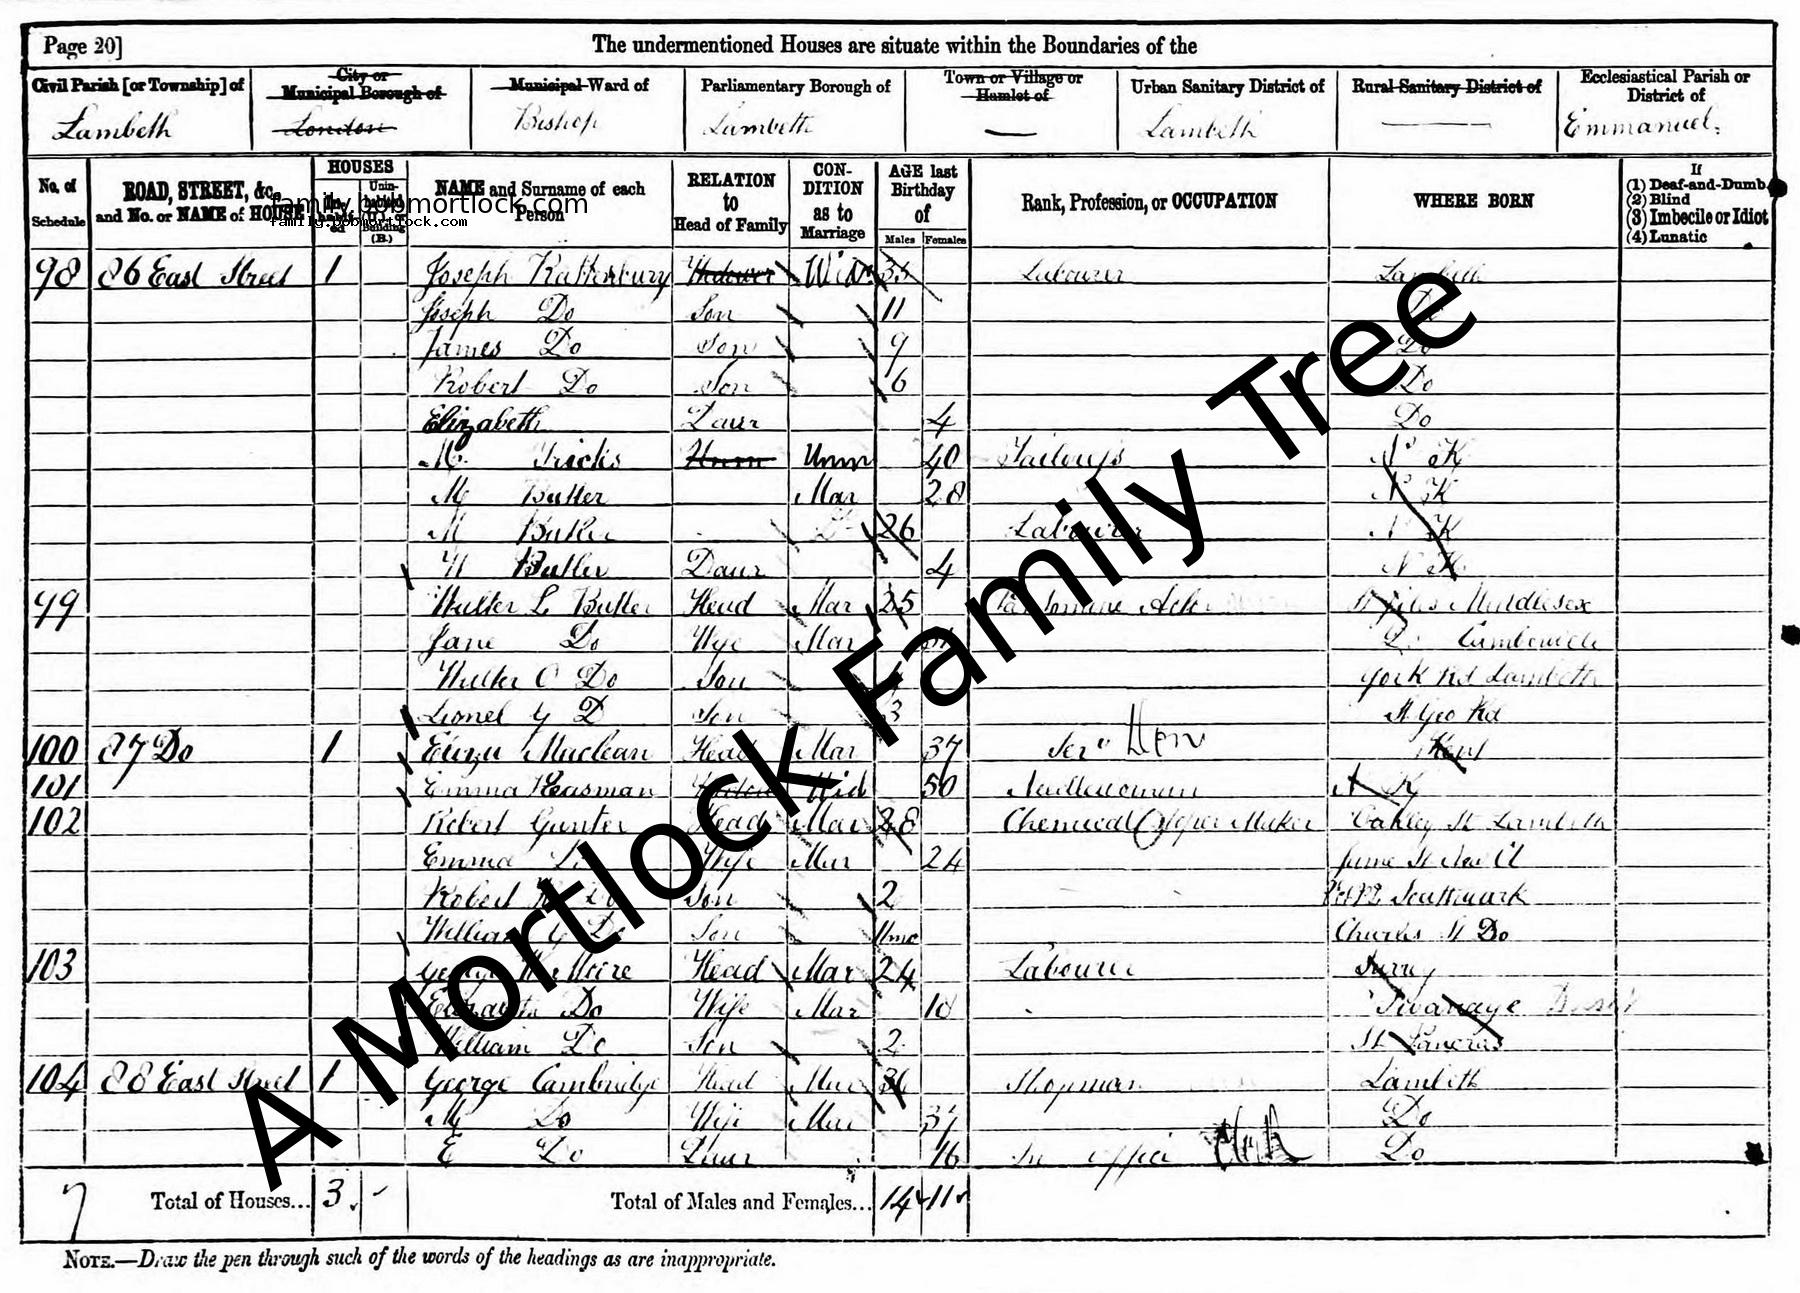 Page 20]
The undermentioned Houses are situate within the Boundaries of the
Civil Parish [or Township] of City or Municipal Borough of Municipal Ward of Parliamentary Borough of Town or Village or Hamlet of Urban Sanitary District of Rural Sanitary District of Ecclesiastical Parish or District of
Lambeth London Bishop Lambeth — Lambeth — Emmanuel
No. of Schedule ROAD, STREET, &c., and No. or NAME of HOUSE HOUSES NAME and Surname of each Person RELATION to Head of Family CONDITION as to Marriage AGE last Birthday of Males Females Rank, Profession, or OCCUPATION WHERE BORN If (1) Deaf-and-Dumb (2) Blind (3) Imbecile or Idiot (4) Lunatic
family.bobmortlock.com
family.bobmortlock.com
98 86 East Street 1 Joseph Rattenbury Widower Wid 35 Labourer Lambeth
Joseph Do Son 11 Do
James Do Son 9 Do
Robert Do Son 6 Do
Elizabeth Daur 4 Do
M. Tricks Unm Unm 40 N K
M Butler Mar 28 N K
M Butler 26 Labourer N K
Butler Daur 4 N K
99 Walter L Butler Head Mar 25 Pantomime Actor St Giles Middlesex
Jane Do Wife Mar Camberwell
Walter C Do Son York Rd Lambeth
Lionel G D Son 3 St Geo Rd
100 87 Do 1 Eliza Maclean Head Mar 37 Kent
101 Emma Heasman Wid 50 Needlewoman N K
102 Robert Gunter Head Mar 28 Chemical Copper Maker Oakley St Lambeth
Emma Wife Mar 24
Robert Son 2 Southwark
William G Do Son 11mo Charles St Do
103 Moore Head Mar 24 Labourer Surrey
Elizabeth Do Wife Mar 18 Swanage Dorset
William Do Son 2 St Pancras
104 88 East Street 1 George Cambridge Head Mar 36 Shopman Lambeth
M Do Wife Mar 37 Do
E Do Daur 16 In office Do
7 Total of Houses... 3 Total of Males and Females... 14 11
NOTE.—Draw the pen through such of the words of the headings as are inappropriate.
A Mortlock Family Tree